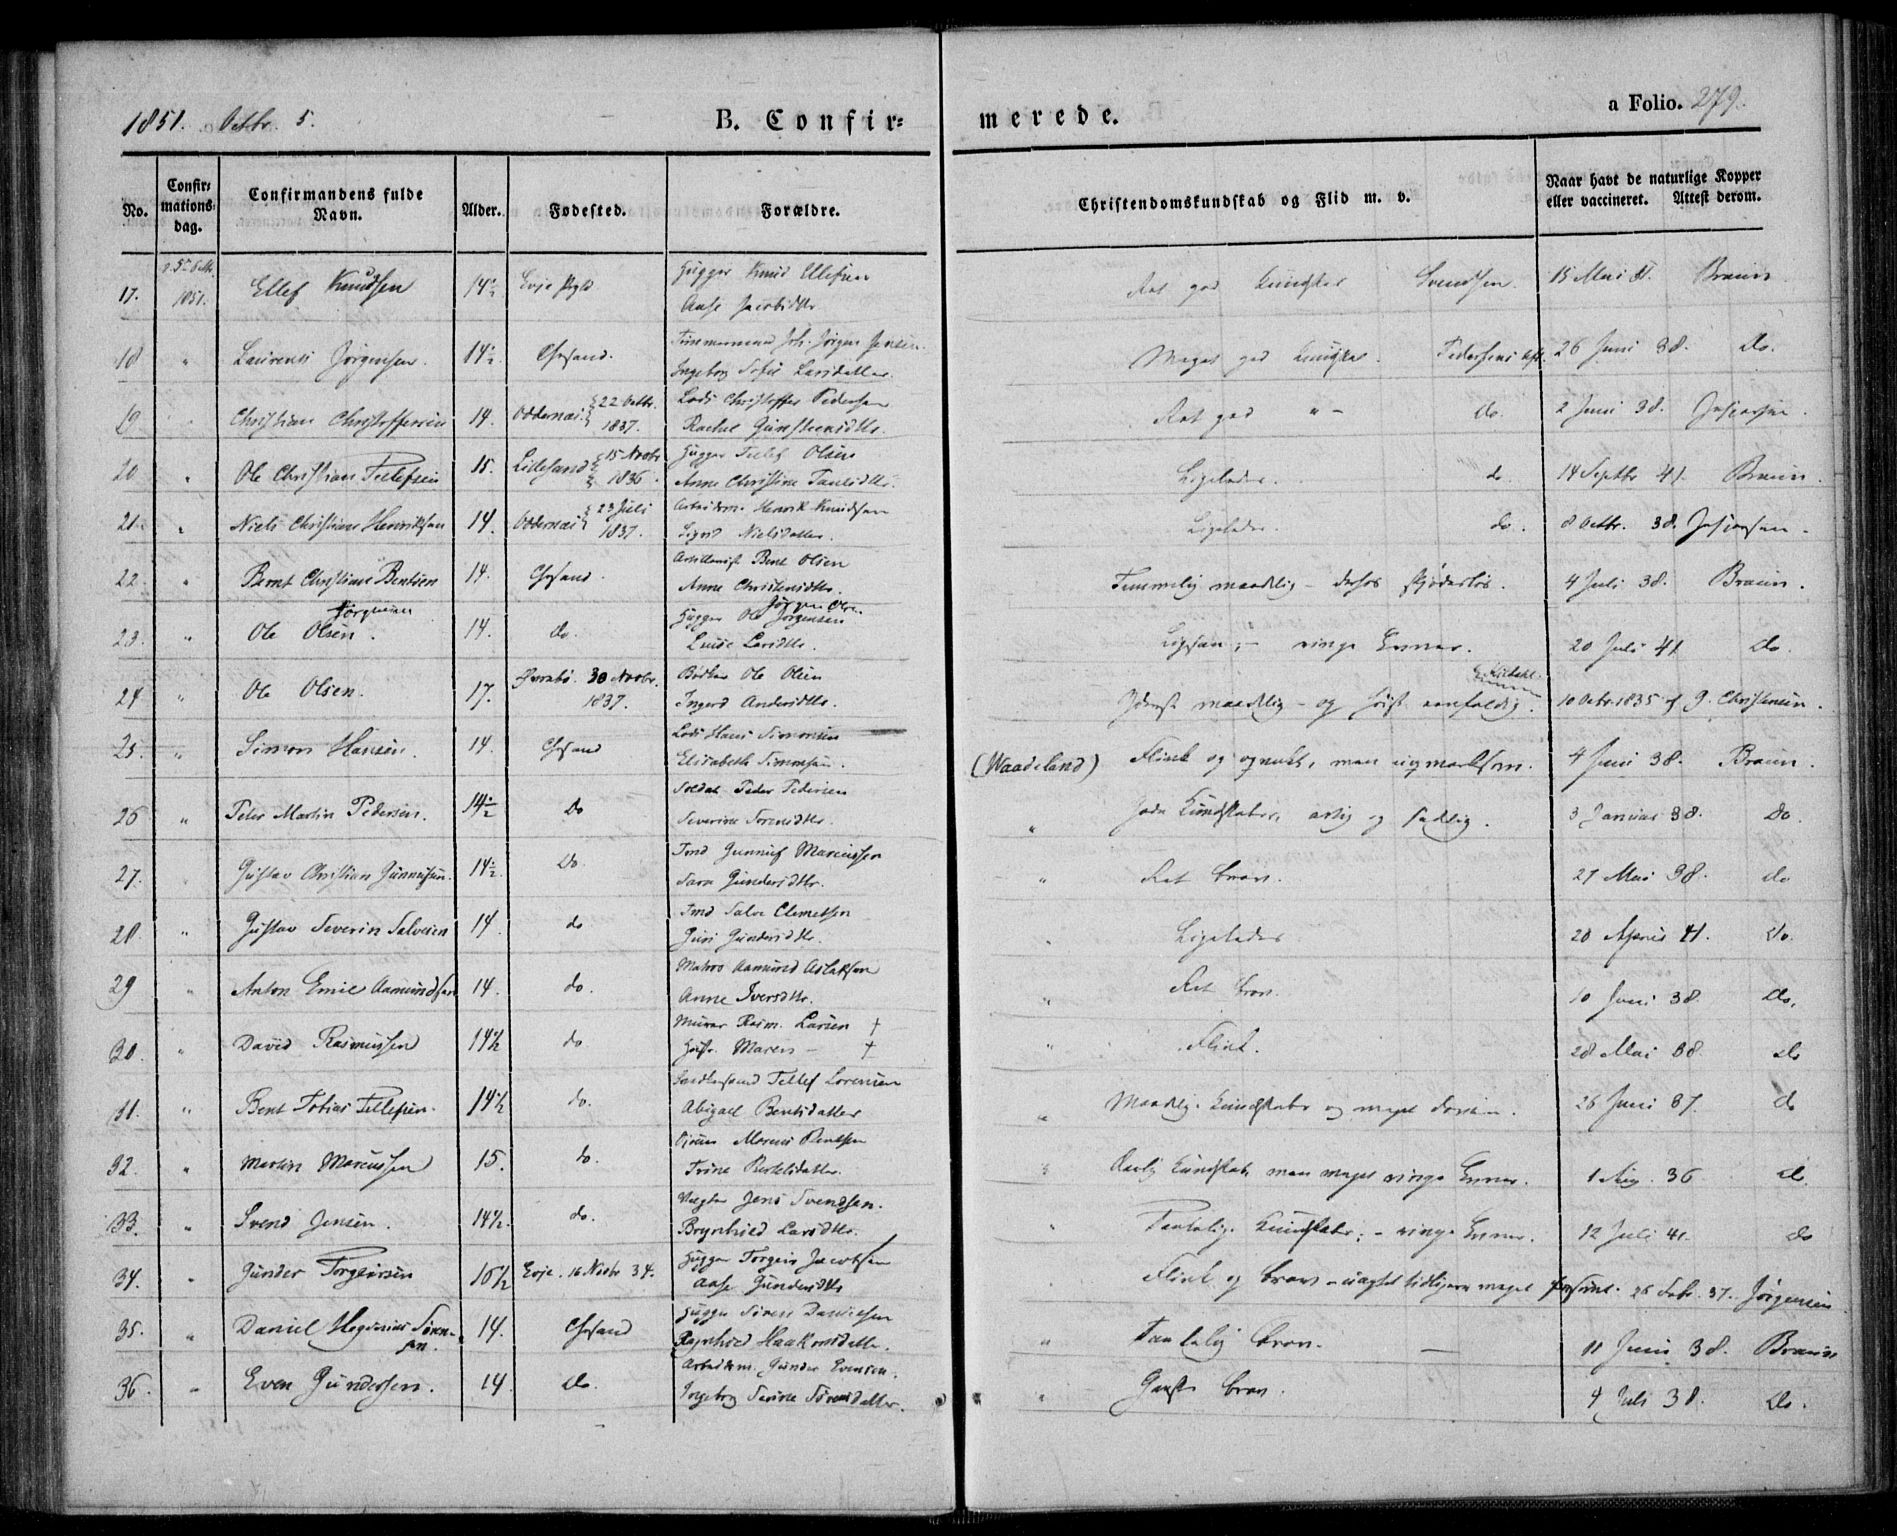 1851. Octbr. 5.
B. Confir=
merede.
a Folio. 279.
No.
Confir=
mations=
dag.
Confirmandens fulde
Navn.
Alder.
Fødested.
Forældre.
Christendomskundskab og Flid m. v.
Naar havt de naturlige Kopper
eller vaccineret. Attest derom.
17. 1851. Ellef Knudsen 14½ Evje
Hugger Knud Ellefsen
Aase Jacobsdttr
Ret god Kundskab Svendsen. 15 Mai Braun
18 " Laurents Jørgensen. 14½. Chrsand.
Tømmermand Joh. Jørgen Jensen.
Ingeborg Sofie Larsdatter.
Meget god Kundskab. Pedersens 26 Juni 38. Do.
19 " Christian Christoffersen 14. Oddernæs 22 Octbr.
1837.
Lods Christoffer Pedersen
Rachel Gunsteensdttr.
Ret god " - do. 2 Juni 38.
20 " Ole Christian Tellefsen 15. Lillesand 15 Novbr
1836.
Hugger Tellef Olsen
Anne Christine
Ligeledes. do. 14 Septbr 41. Braun.
21. " Niels Christian Henriksen 14. Oddernæs 23 Juli
1837.
Arbeidsm. Henrik Knudsen
Sigrid Nielsdatter.
Ligeledes. do. 8 Octbr. 38.
22. " Bernt Christian Bentsen 14. Chrsand.
Artillerist Bent Olsen
Anne Christensdttr.
Temmelig maadelig - 4 Juli 38. Braun.
Jørgensen
23. " Ole Olsen. 14. do.
Jørgen Olsen
Hugger Ole Jørgensen
Luise Larsdttr.
Ligesaa; - ringe Evner. 20 Juli 41 Do.
24 " Ole Olsen. 17. Øvrebø. 30 Novbr.
1837.
Bødker Ole Olsen
Ingerd Andersdttr.
Yderst maadelig - og høist eenfoldig. 10 Octbr. 1835 af G. Christensen.
25 " Simon Hansen. 14. Chrsand
Lods Hans Simonsen
Elisabeth
(Waadeland) Flink og men 4 Juni 38. Braun.
26 " Peter Martin Pedersen. 14½ Do
Soldat Peder Pedersen
Severine Sørensdttr.
" Gode Kundskaber, artig og sædelig. 3 Januar 38. Do.
27. Gustav Christian Gunnufsen. 14½. Do
Tmd Gunnuf Marcussen
Sara Gundersdttr.
" Ret brav. 27 Mai 38. do
28. " Gustav Severin Salvesen 14. do
Tmd Salve Clemetsen
Guri Gundersdttr.
" Ligeledes 20 April 41. Do.
29 " Anton Emil Aamundsen 14. do.
Matros Aamund Aslaksen
Anne Iversdttr.
" Ret brav. 10 Juni 38. Do.
30. " David Rasmussen 14½ do.
Murer Rasm. Larsen †
Hustr. Maren - †
" Flink. 28 Mai 38. do
31. " Bent Tobias Tellefsen. 14½ do.
Tellef Lorensen
Abigael Bentsdatter
" Maadelig Kundskaber og meget 26 Juni 37. do
32. " Martin Marcussen 15. do.
Marcus Bentsen
Trine Bertelsdatter.
Kundskab, men meget ringe Evner. 1 Aug. 36 do.
33. " Svend Jensen. 14½. do.
Vægter Jens Svendsen.
Brynhild Larsdttr.
" Taalelige Kundskaber; - ringe Evner. 12 Juli 41. do
34. " Gunder Torgiersen 16½ Evje. 16 Novbr 34.
Hugger Torgeir Jacobsen
Aase Gundersdttr
" Flink og brav - uagtet tidligere meget forsømt. 26 Febr. 37. Jørgensen
35. " Daniel Søren-
sen. 14. Chrsand
Hugger Søren Danielsen
Ragnhild Haakonsdatter.
" Taalelig brav. — 11 Juni 38. Braun
36. " Even Gundersen. 14. do.
Arbeidsm. Gunder Evensen.
Ingeborg Serine Sørensdatter.
" Ganske brav. 4 Juli 38. do.